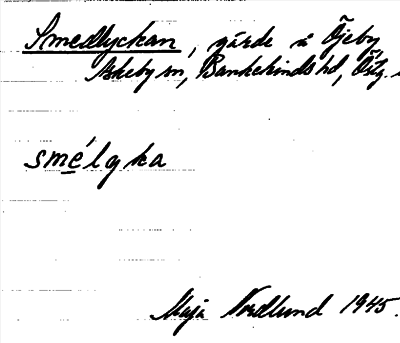 Smedlyckan, gärde i Öjeby
Askeby sn, Bankekinds hd, Östg.
smélyka
Maja Nordlund 1945.